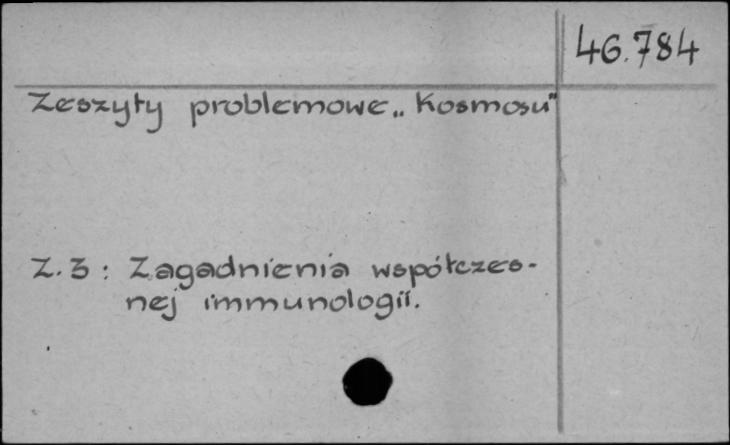 46.784
Zeszyty problemowe „Kosmosu"
Z. 3: Zagadnienia współczes-
nej immunologii.